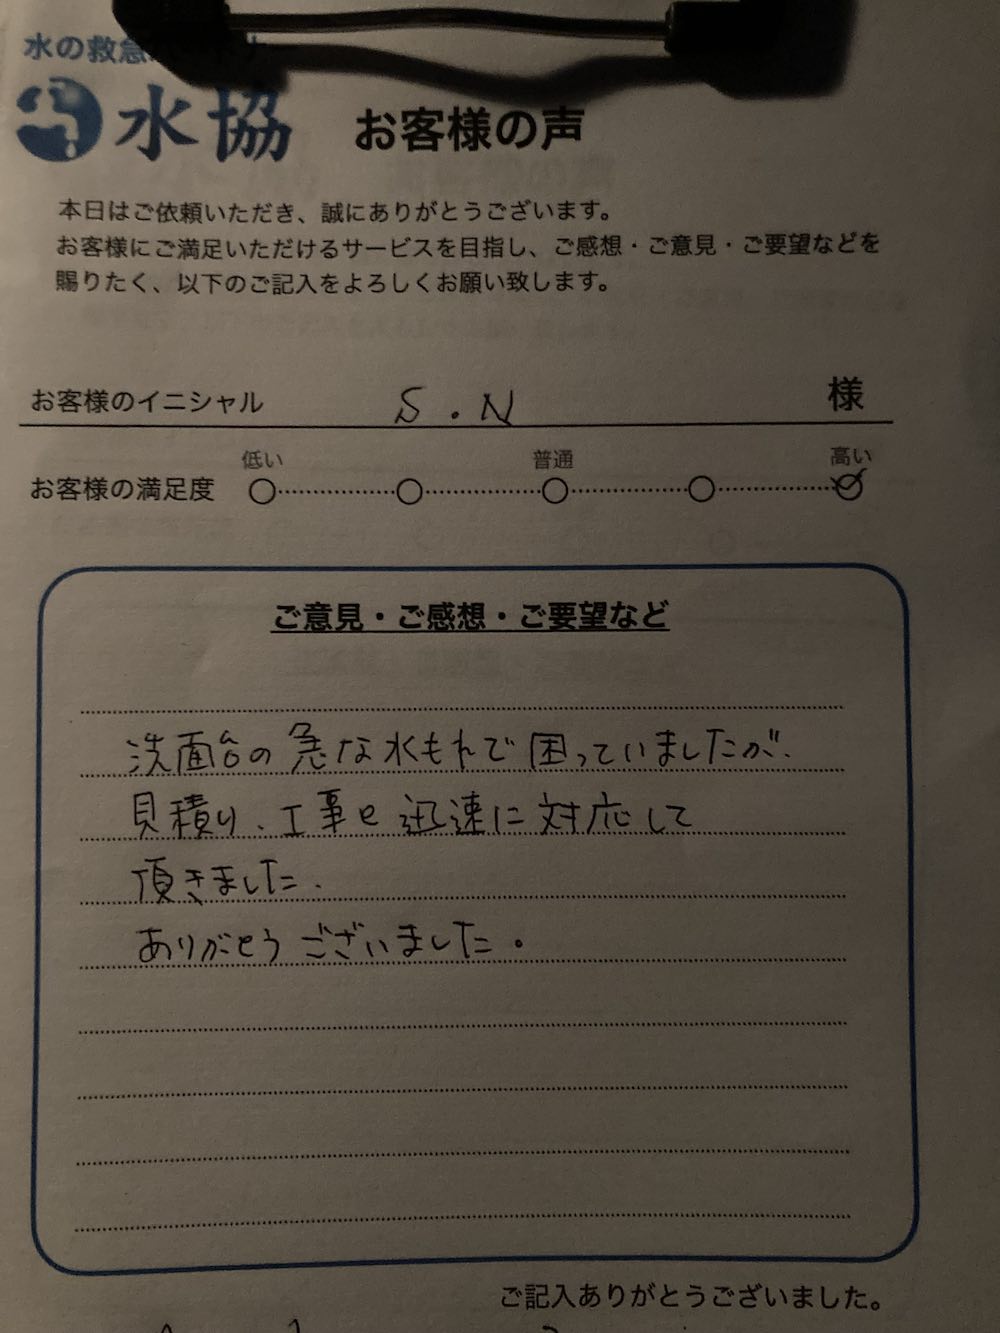 水の救急
水協
お客様の声
本日はご依頼いただき、誠にありがとうございます。
お客様にご満足いただけるサービスを目指し、ご感想・ご意見・ご要望などを
賜りたく、以下のご記入をよろしくお願い致します。
お客様のイニシャル S.N 様
低い 普通 高い
お客様の満足度
ご意見・ご感想・ご要望など
洗面台の急な水もれで困っていましたが、
見積り、工事と迅速に対応して
頂きました.
ありがとうございました。
ご記入ありがとうございました。